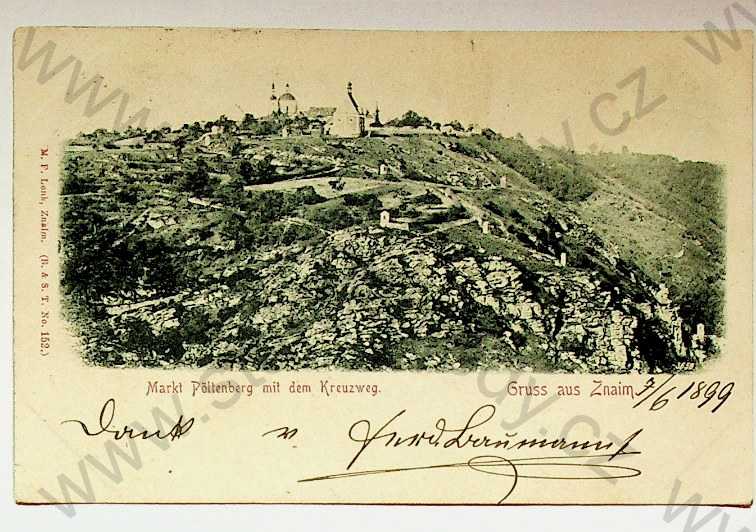 M. F. Lenk, Znaim. (R. & S. T. No. 152.)
Markt Pöltenberg mit dem Kreuzweg.
Gruss aus Znaim. 7/6 1899
Dank v Ferd. Baumann